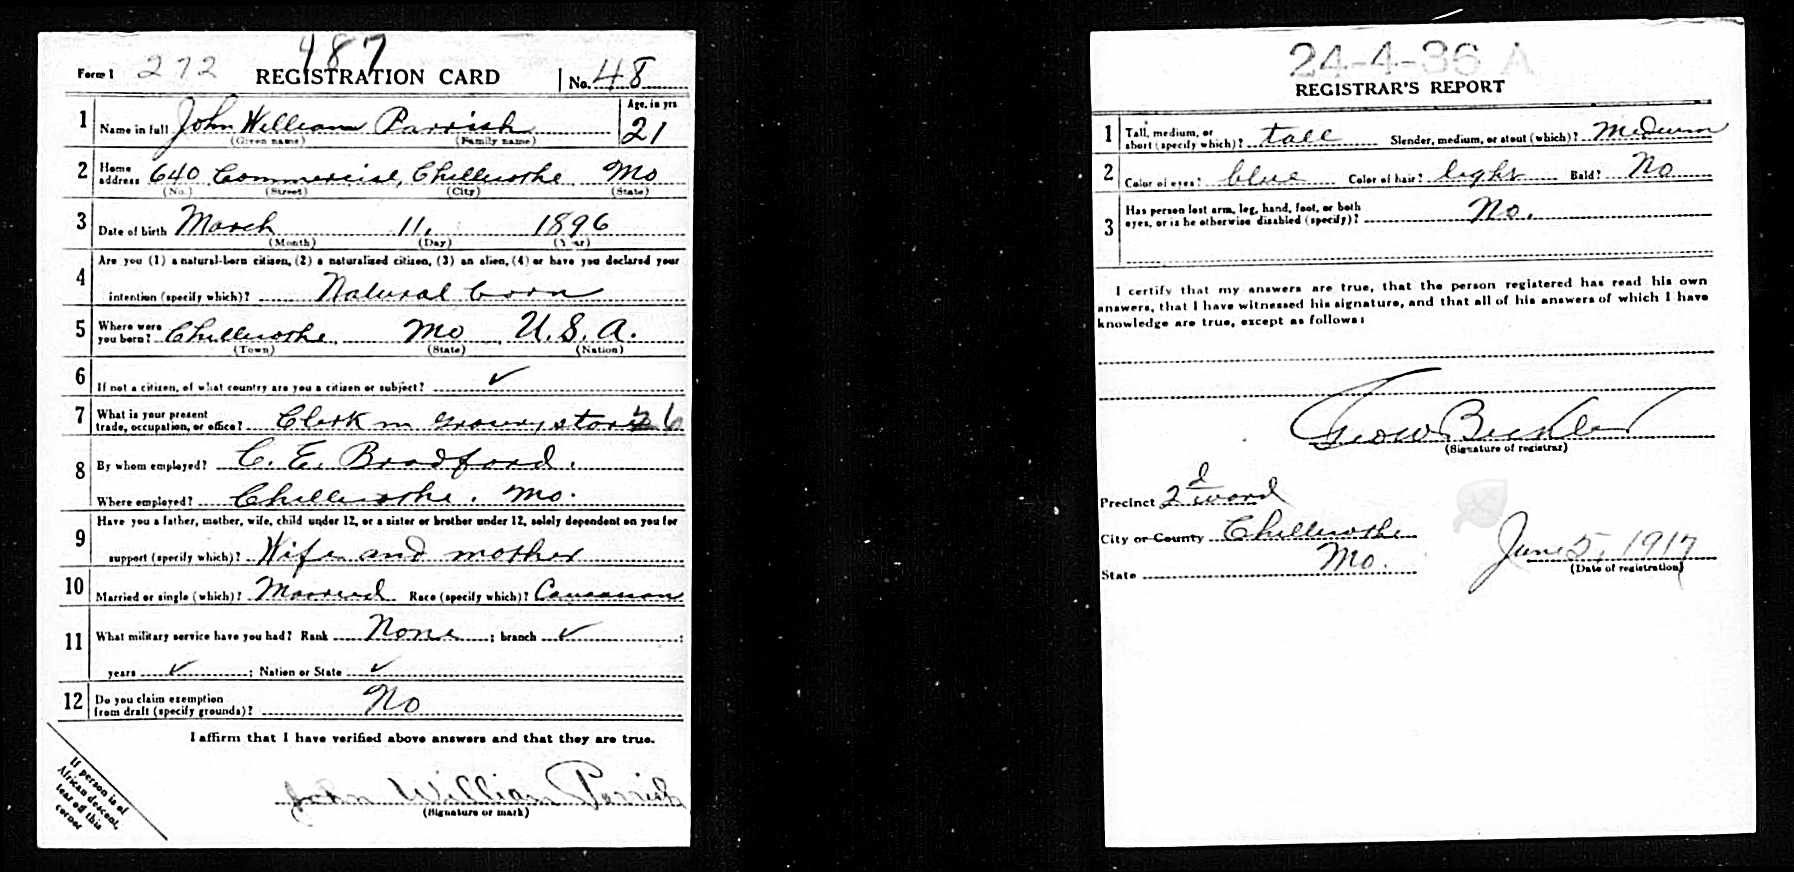 487
Form 1 272 REGISTRATION CARD No. 48
1 Name in full John William Parrish Age, in yrs 21
(Given name) (Family name)
2 Home address 640 Commercial, Chillicothe Mo
(No.) (Street) (City) (State)
3 Date of birth March 11, 1896
(Month) (Day) (Year)
4 Are you (1) a natural-born citizen, (2) a naturalized citizen, (3) an alien, (4) or have you declared your
intention (specify which)? Natural born
5 Where were you born? Chillicothe, Mo, U.S.A.
(Town) (State) (Nation)
6 If not a citizen, of what country are you a citizen or subject? ✓
7 What is your present
trade, occupation, or office? Clerk in grocery store 26
8 By whom employed? C. E. Bradford.
Where employed? Chillicothe. Mo.
9 Have you a father, mother, wife, child under 12, or a sister or brother under 12, solely dependent on you for
support (specify which)? Wife and mother
10 Married or single (which)? Married Race (specify which)? Caucasian
11 What military service have you had? Rank None ; branch ✓ ;
years ✓ ; Nation or State ✓
12 Do you claim exemption
from draft (specify grounds)? No
I affirm that I have verified above answers and that they are true.
John William Parrish
(Signature or mark)
If person is of
African descent,
tear off this
corner
24-4-36 A
REGISTRAR'S REPORT
1 Tall, medium, or
short (specify which)? tall Slender, medium, or stout (which)? Medium
2 Color of eyes? blue Color of hair? light Bald? No
3 Has person lost arm, leg, hand, foot, or both
eyes, or is he otherwise disabled (specify)? No.
I certify that my answers are true, that the person registered has read his own
answers, that I have witnessed his signature, and that all of his answers of which I have
knowledge are true, except as follows:
Geo W
(Signature of registrar)
Precinct 2d ward
City or County Chillicothe
State Mo.
June 5, 1917
(Date of registration)